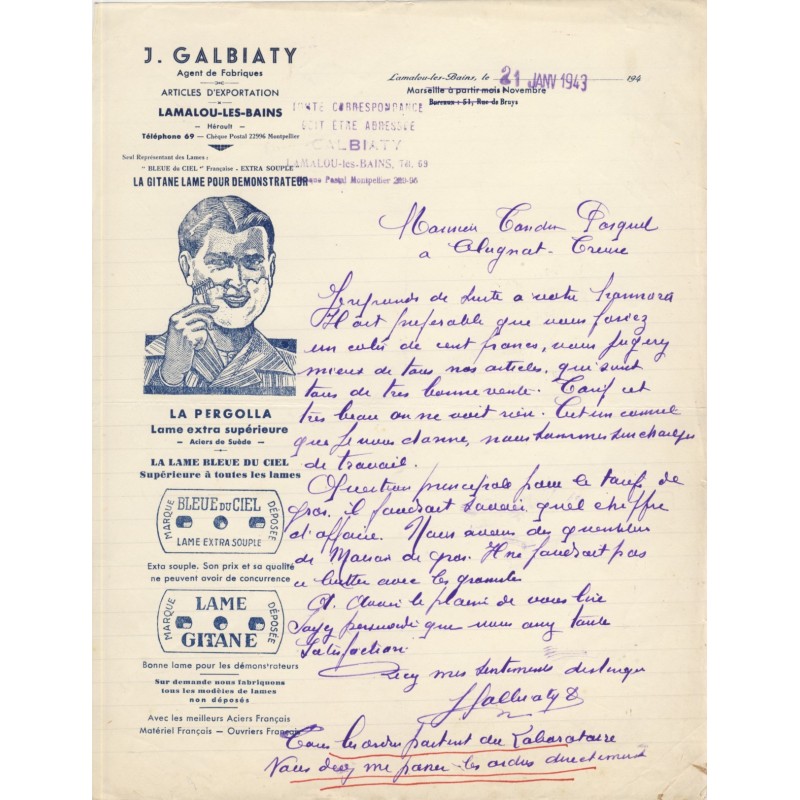 J. GALBIATY
Agent de Fabriques
ARTICLES D'EXPORTATION
LAMALOU-LES-BAINS
- Hérault -
Téléphone 69 - Chèque Postal 22996 Montpellier
Seul Représentant des Lames :
"BLEUE du CIEL" Française - EXTRA SOUPLE
LA GITANE LAME POUR DEMONSTRATEUR
Lamalou-les-Bains, le 21 JANV 1943 194
Marseille à partir mois Novembre
Bureaux : 51, Rue de Bruys
TOUTE CORRESPONDANCE
DOIT ÊTRE ADRESSÉE
GALBIATY
LAMALOU-les-BAINS, Tél. 69
Postal Montpellier
LA PERGOLLA
Lame extra supérieure
- Aciers de Suède -
LA LAME BLEUE DU CIEL
Supérieure à toutes les lames
MARQUE
BLEUE DU CIEL
LAME EXTRA SOUPLE
DÉPOSÉE
Exta souple. Son prix et sa qualité
ne peuvent avoir de concurrence
MARQUE
LAME
GITANE
DÉPOSÉE
Bonne lame pour les démonstrateurs
Sur demande nous fabriquons
tous les modèles de lames
non déposés
Avec les meilleurs Aciers Français
Matériel Français - Ouvriers Français
Monsieur
a Clugnat - Creuse
Je reprends de suite a votre
Il est preferable que vous fassiez
un colis de cent francs, vous jugerez
mieux de tous nos articles, qui sont
tous de tres bonne vente. Tarif est
tres beau on ne voit rien. C'est un conseil
que je vous donne, nous sommes surcharges
de travail.
Question principale pour le tarif de
gros, il faudrait savoir quel chiffre
d'affaire. Nous avons des
de Maison de gros. Il ne faudrait pas
lutter avec les grossistes
le plaisir de vous lire
Soyez persuadé que vous aurez toute
satisfaction.
Recevez mes sentiments distingués
J Galbiaty
Tous les ordres partent du Laboratoire
Vous devez me passer les ordres directement